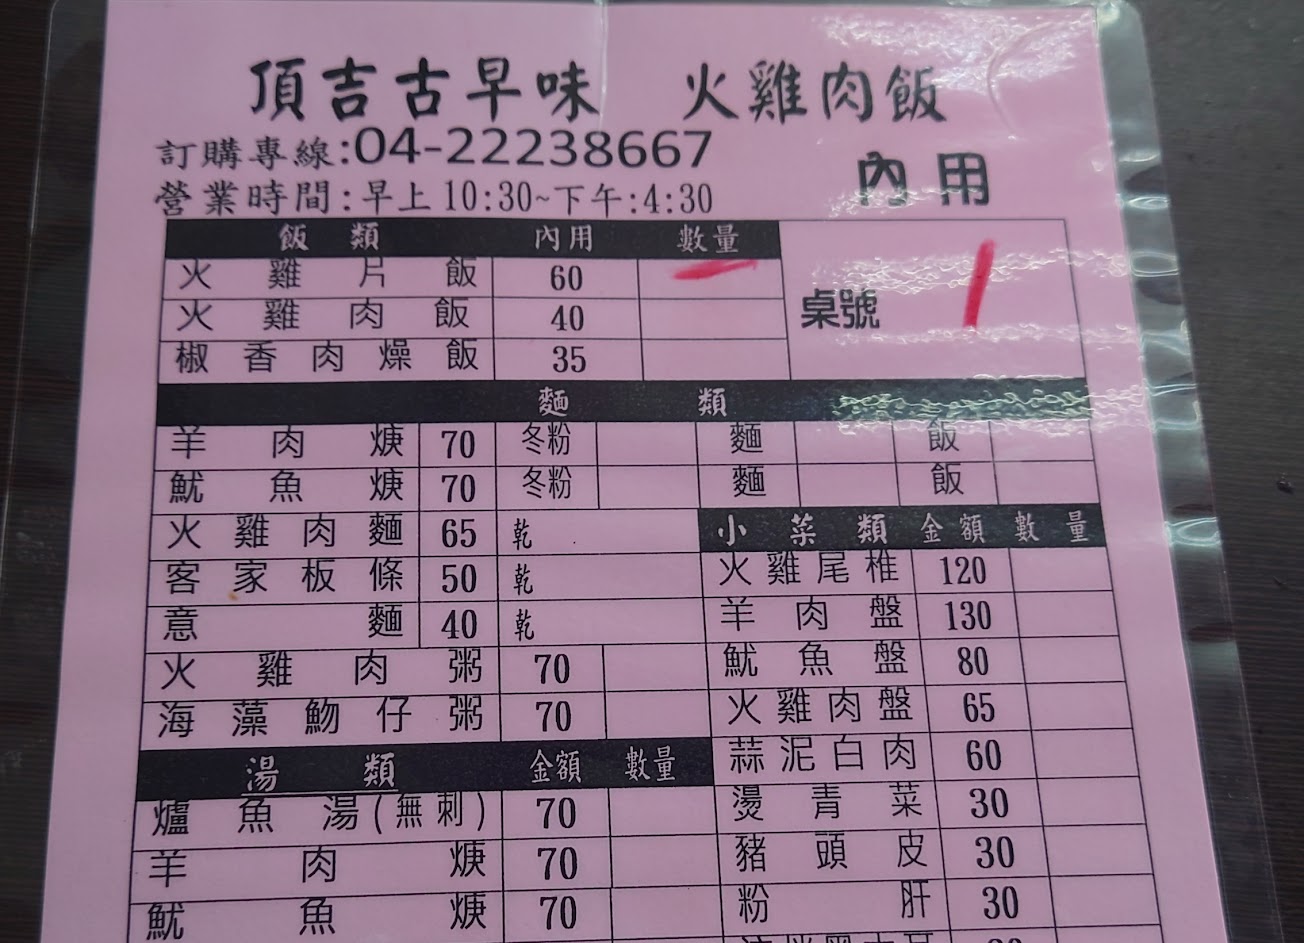 頂吉古早味 火雞肉飯
訂購專線:04-22238667
營業時間:早上10:30~下午:4:30
內用
飯類 內用 數量
火雞片飯 60 一
火雞肉飯 40
椒香肉燥飯 35
桌號 1
麵類
羊肉焿 70 冬粉 麵 飯
魷魚焿 70 冬粉 麵 飯
火雞肉麵 65 乾
客家板條 50 乾
意麵 40 乾
火雞肉粥 70
海藻魩仔粥 70
湯類 金額 數量
爐魚湯(無刺) 70
羊肉焿 70
魷魚焿 70
小菜類 金額 數量
火雞尾椎 120
羊肉盤 130
魷魚盤 80
火雞肉盤 65
蒜泥白肉 60
燙青菜 30
豬頭皮 30
粉肝 30